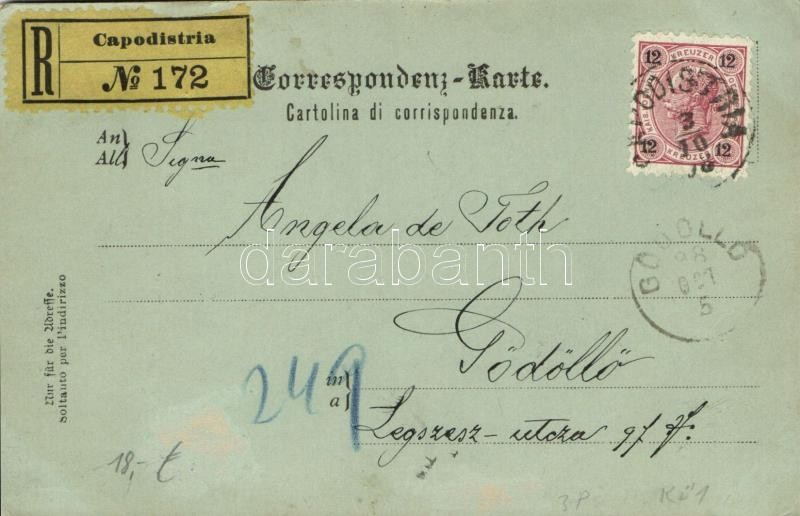 R
Capodistria
№ 172
Correspondenz-Karte.
Cartolina di corrispondenza.
12 KREUZER 12
12 KREUZER 12
CAPODISTRIA
3
10
98
An
All
Segna
Angela de Tóth
darabanth
GÖDÖLLŐ
98
OCT
5
Nur für die Adresse.
Soltanto per l'indirizzo
249
in
a
Gödöllő
18,- €
3P
Kü1